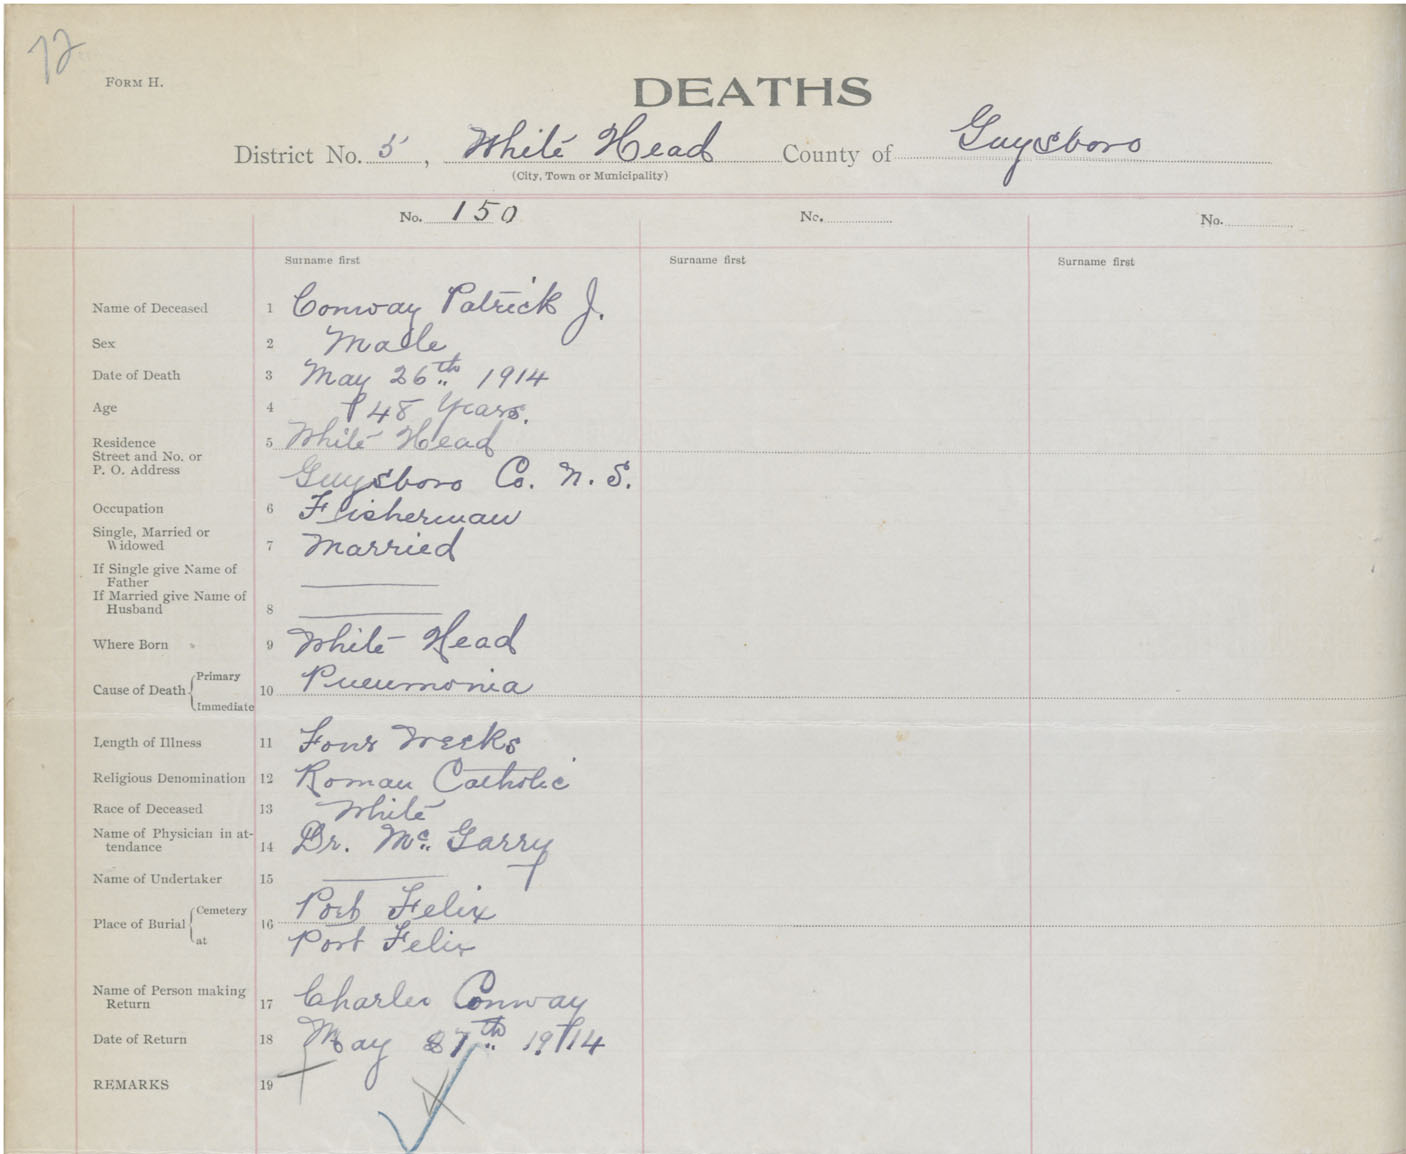 72
FORM H.
DEATHS
District No. 5, White Head County of Guysboro
(City, Town or Municipality)
No. 150 No. No.
Surname first Surname first Surname first
Name of Deceased 1 Conway Patrick J.
Sex 2 Male
Date of Death 3 May 26th 1914
Age 4 48 Years.
Residence 5 White Head
Street and No. or
P. O. Address Guysboro Co. N. S.
Occupation 6 Fisherman
Single, Married or
Widowed 7 Married
If Single give Name of
Father
If Married give Name of
Husband 8
Where Born 9 White Head
Cause of Death Primary 10 Pneumonia
Immediate
Length of Illness 11 Four Weeks
Religious Denomination 12 Roman Catholic
Race of Deceased 13 White
Name of Physician in at-
tendance 14 Dr. Mc. Garry
Name of Undertaker 15
Place of Burial Cemetery 16 Port Felix
at Port Felix
Name of Person making
Return 17 Charles Conway
Date of Return 18 May 27th 1914
REMARKS 19